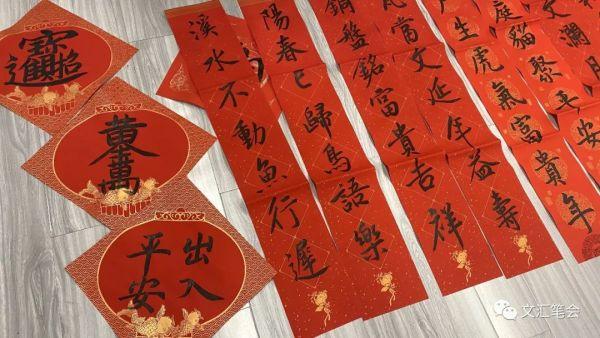 招財進寶
黃金萬兩
出入
平安
溪水不動魚行遲
陽春已歸鳥語樂
銅盤銘富貴吉祥
瓦當文延年益壽
生虎氣富貴年
庭貓聚平安
文瀾月
文汇笔会